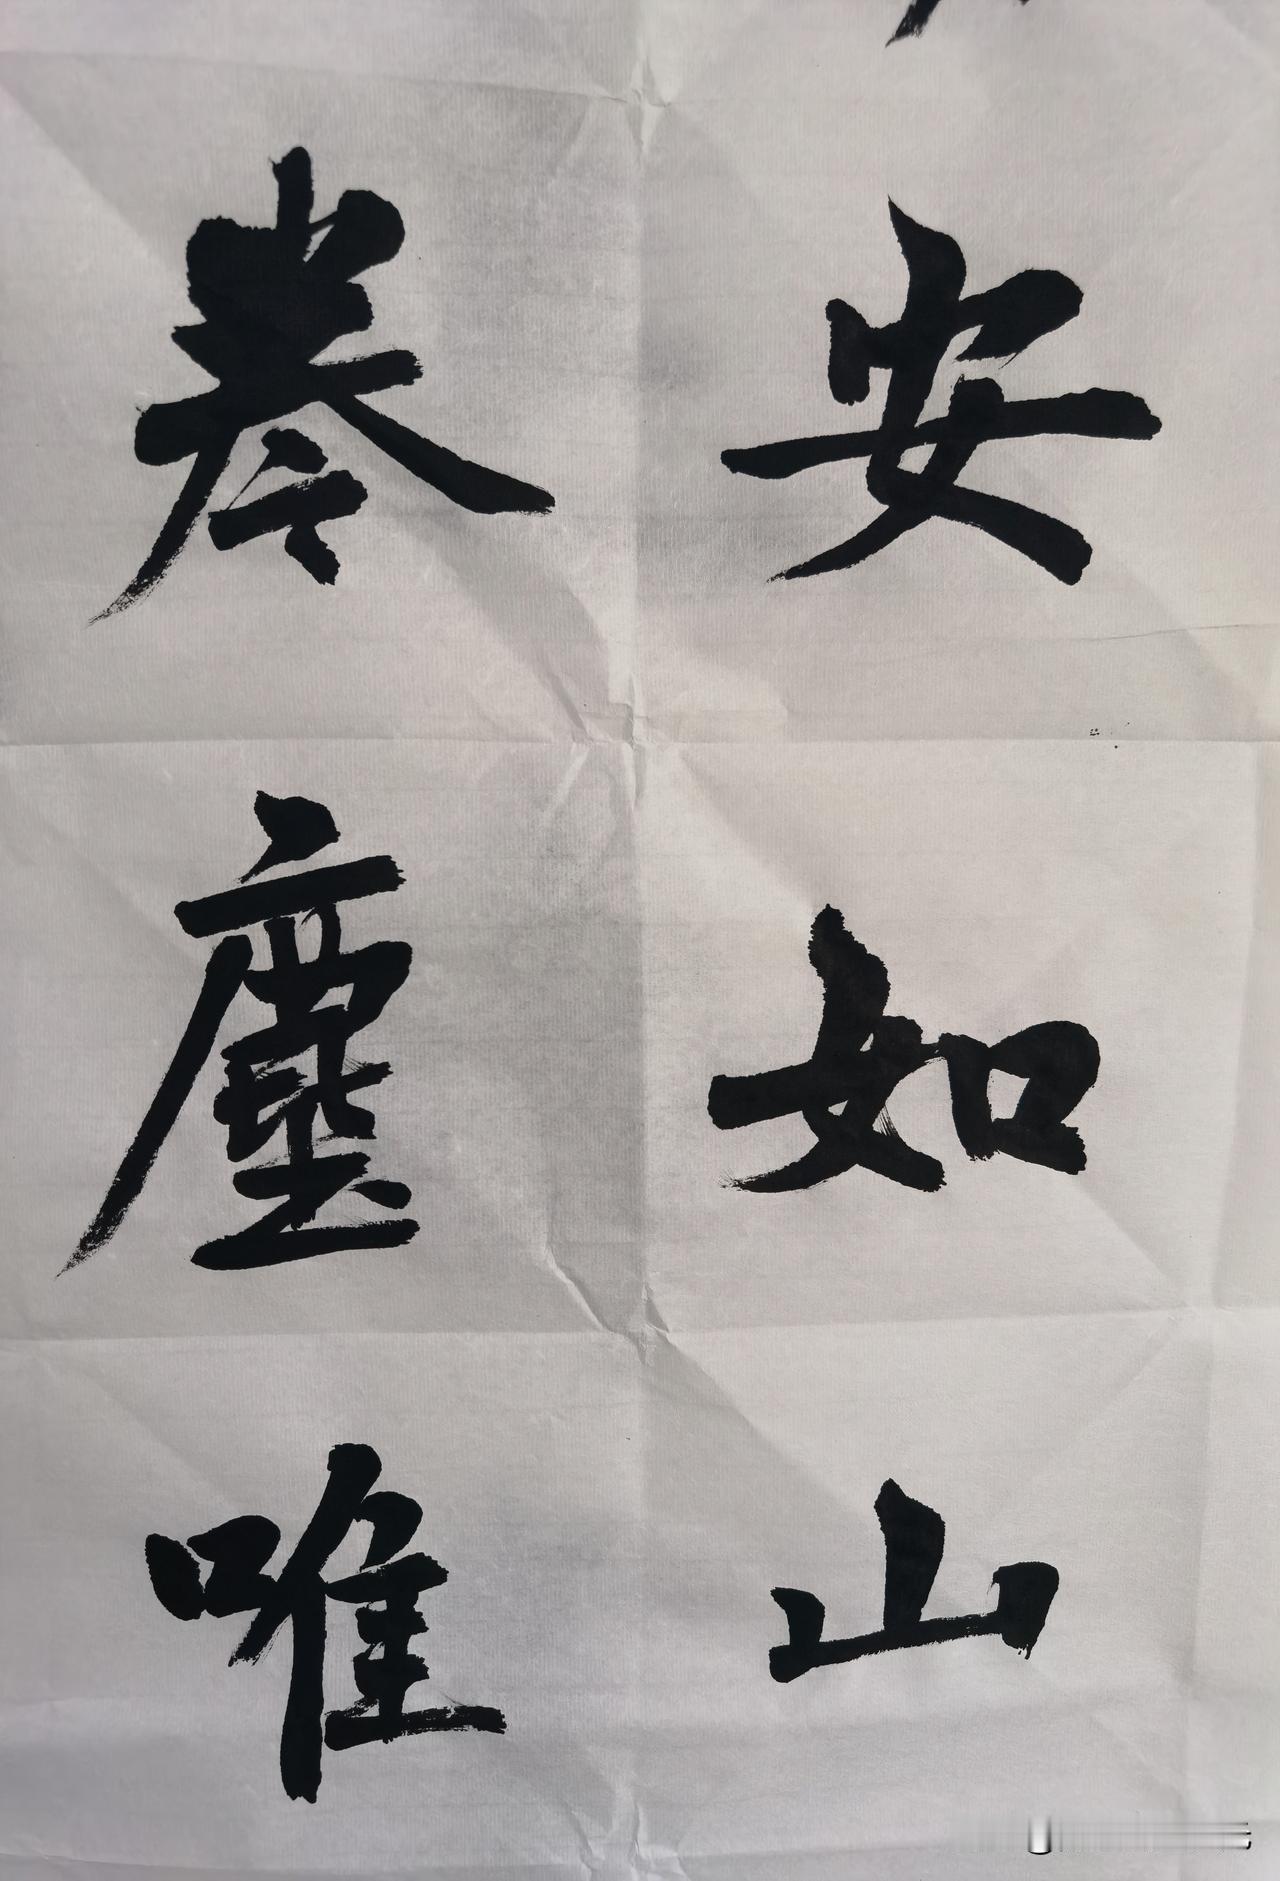 安如山
卷塵唯